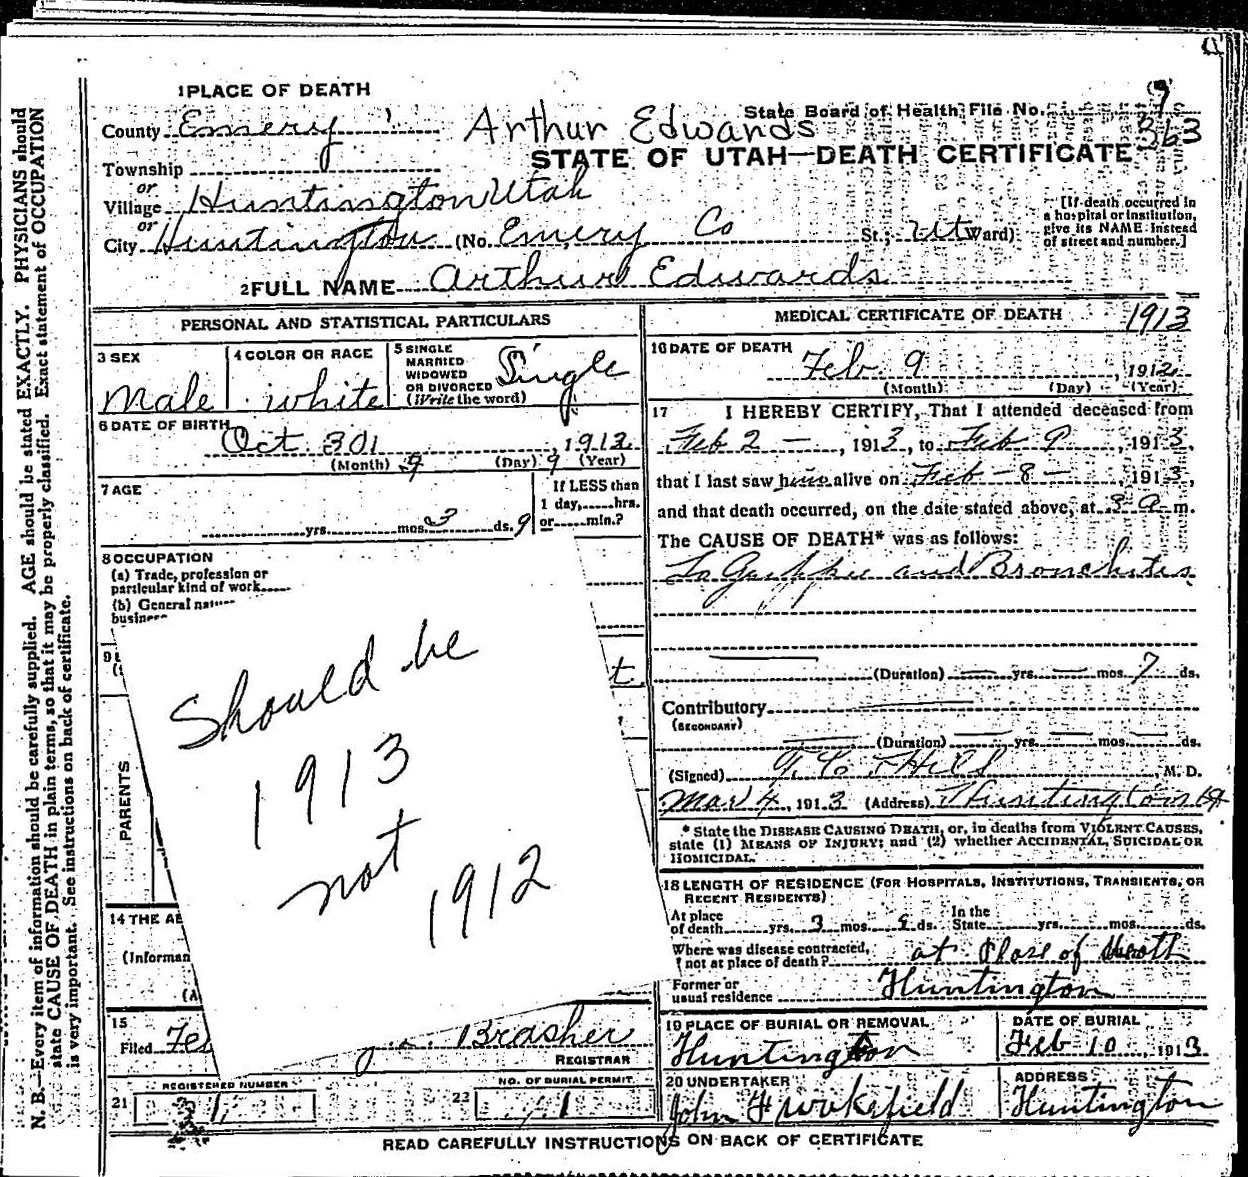 N. B.—Every item of information should be carefully supplied. AGE should be stated EXACTLY. PHYSICIANS should
state CAUSE OF DEATH in plain terms, so that it may be properly classified. Exact statement of OCCUPATION
is very important. See instructions on back of certificate.
1 PLACE OF DEATH
State Board of Health File No. 363
County Emery
Arthur Edwards
STATE OF UTAH—DEATH CERTIFICATE
Township
or
Village Huntington Utah
or
City Huntington (No. Emery Co St.; Ut Ward)
[If death occurred in
a hospital or institution,
give its NAME instead
of street and number.]
2 FULL NAME Arthur Edwards
PERSONAL AND STATISTICAL PARTICULARS
3 SEX
Male
4 COLOR OR RACE
white
5 SINGLE
MARRIED
WIDOWED
OR DIVORCED
(Write the word)
Single
6 DATE OF BIRTH
Oct. 301, 1912
(Month) 9 (Day) 9 (Year)
7 AGE
yrs. mos. 3 ds. 9
If LESS than
1 day, hrs.
or min.?
8 OCCUPATION
(a) Trade, profession or
particular kind of work
(b) General
9
t.
Should be
1913
not
1912
PARENTS
14 THE
(Informan
(A
15
Filed Brasher
REGISTRAR
REGISTERED NUMBER
21 1
NO. OF BURIAL PERMIT
22 1
MEDICAL CERTIFICATE OF DEATH 1913
16 DATE OF DEATH
Feb 9, 1912
(Month) (Day) (Year)
17 I HEREBY CERTIFY, That I attended deceased from
Feb 2 —, 1913, to Feb 9, 1913,
that I last saw him alive on Feb — 8 —, 1913,
and that death occurred, on the date stated above, at 3 a m.
The CAUSE OF DEATH* was as follows:
La Grippe and Bronchites
(Duration) — yrs. — mos. 7 ds.
Contributory
(SECONDARY)
(Duration) — yrs. — mos. — ds.
(Signed) Hill, M. D.
Mar 4, 1913 (Address) Huntington Ut
* State the DISEASE CAUSING DEATH, or, in deaths from VIOLENT CAUSES,
state (1) MEANS OF INJURY; and (2) whether ACCIDENTAL, SUICIDAL OR
HOMICIDAL.
18 LENGTH OF RESIDENCE (FOR HOSPITALS, INSTITUTIONS, TRANSIENTS, OR
RECENT RESIDENTS)
At place
of death yrs. 3 mos. 9 ds. In the
State yrs. mos. ds.
Where was disease contracted,
if not at place of death? at Place of death
Former or
usual residence Huntington
19 PLACE OF BURIAL OR REMOVAL
Huntington
DATE OF BURIAL
Feb 10, 1913
20 UNDERTAKER
John F Wakefield
ADDRESS
Huntington
READ CAREFULLY INSTRUCTIONS ON BACK OF CERTIFICATE